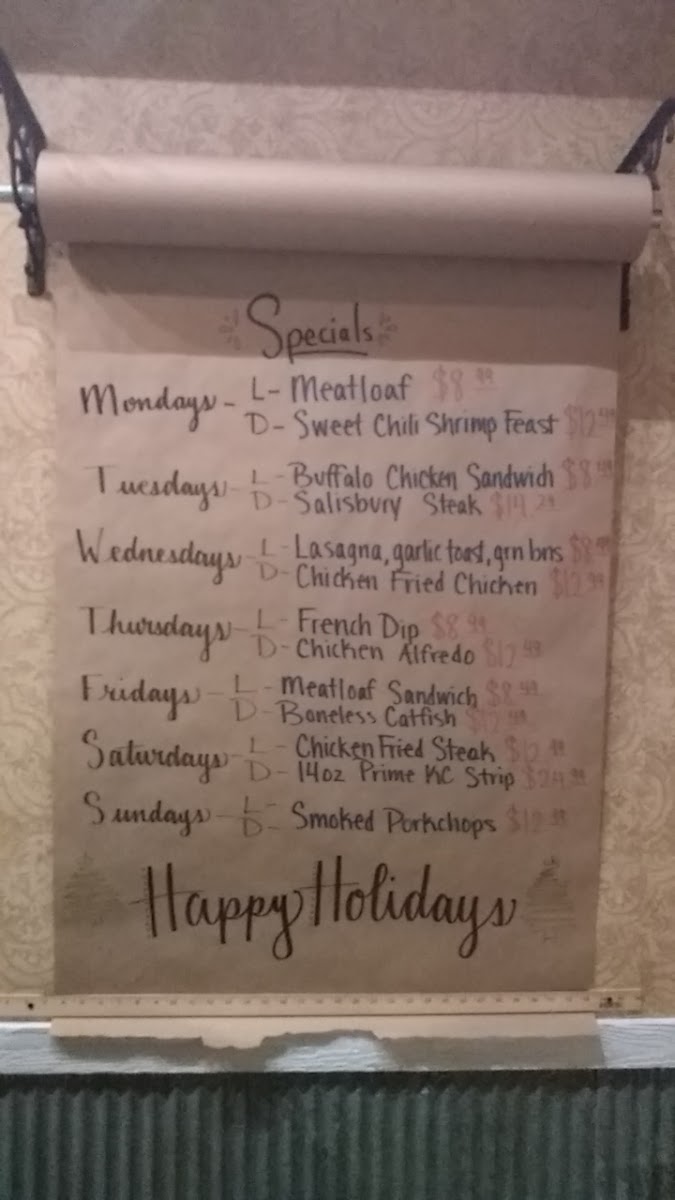 Specials
Mondays - L - Meatloaf $8.99
D - Sweet Chili Shrimp Feast $12.99
Tuesdays - L - Buffalo Chicken Sandwich $8.99
D - Salisbury Steak
Wednesdays L - Lasagna, garlic toast, grn bns
D - Chicken Fried Chicken $12.99
Thursdays - L - French Dip $8.99
D - Chicken Alfredo $12.99
Fridays - L - Meatloaf Sandwich $8.99
D - Boneless Catfish $12.99
Saturdays - L - Chicken Fried Steak $12.99
D - 14oz Prime KC Strip $24.99
Sundays - L -
D - Smoked Porkchops $12.99
Happy Holidays